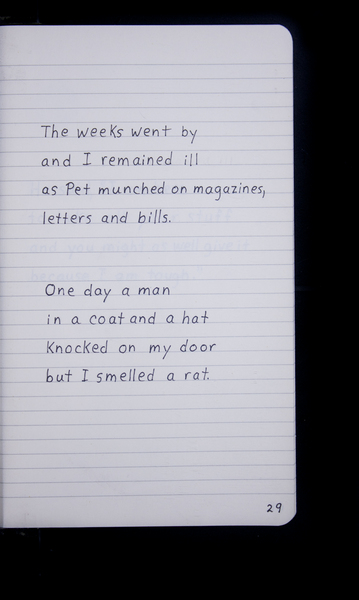 The weeks went by
and I remained ill
as Pet munched on magazines,
letters and bills.
One day a man
in a coat and a hat
Knocked on my door
but I smelled a rat.
29